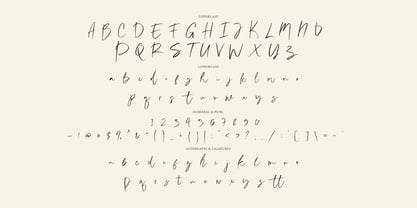 UPPERCASE
A B C D E F G H I J K L M N O
P Q R S T U V W X Y Z
LOWERCASE
a b c d e f g h i j k l m n o
p q r s t u v w x y z
NUMERAL & PUNC
1 2 3 4 5 6 7 8 9 0
ALTERNATES & LIGATURES
a b c d e f g h i j k l m n o